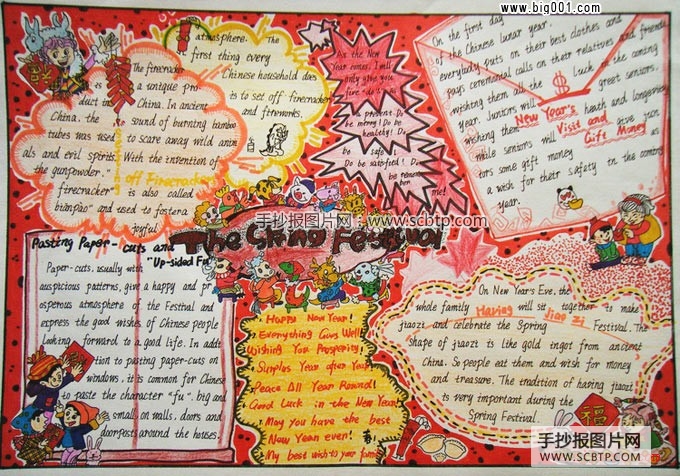 www.big001.com
The firecracker
is a unique pro
duct in China. In ancient
China, the sound of burning bamboo
tubes was used to scare away wild anim
als and evil spirits. With the invention of
the gunpowder, "
firecracker" is also called
bianpao" and used to foster a
joyful
off Firecrackers
atmosphere. The
first thing every
Chinese household does
is to set off firecrackers
and fireworks.
As the New
Year comes, I will
only give you
five "do"
present. Do
be merry! Do be
healthy! Do
be safe!
Do be satisfied! Do
be remember
me!
On the first day
of the Chinese lunar year.
everybody puts on their best clothes and
pays ceremonial calls on their relatives and friends
wishing them all the $ luck in the coming
year. Juniors will greet seniors.
wishing them heath and longevity
New Year's
Visit and
Gift Money
while seniors will give jun
iors some gift money as
a wish for their safety in the coming
year.
手抄报图片网 : www.scbtp.com
The Spring Festival
Pasting Paper-cuts and
"Up-sided Fu"
Paper-cuts, usually with
auspicious patterns, give a happy and pr
osperous atmosphere of the Festival and
express the good wishes of Chinese people
looking forward to a good life. In addi
tion to pasting paper-cuts on
windows, it is common for Chinese
to paste the character "fu", big and
small, on walls, doors and
doorposts around the houses.
Happy New Year!
Everything Goes Well!
Wishing You Prosperity!
Surplus Year after Year
Peace All Year Round!
Good Luck in the New Year!
May you have the best
New Year ever!
My best wish to your family
On New Year's Eve, the
whole family will sit together to make
Having Jiao Zi
jiaozi and celebrate the Spring Festival. The
shape of jiaozi is like gold ingot from ancient
China. So people eat them and wish for money
and treasure. The tradition of having jiaozi
is very important during the
Spring Festival.
福
手抄报图片网
WWW.SCBTP.COM